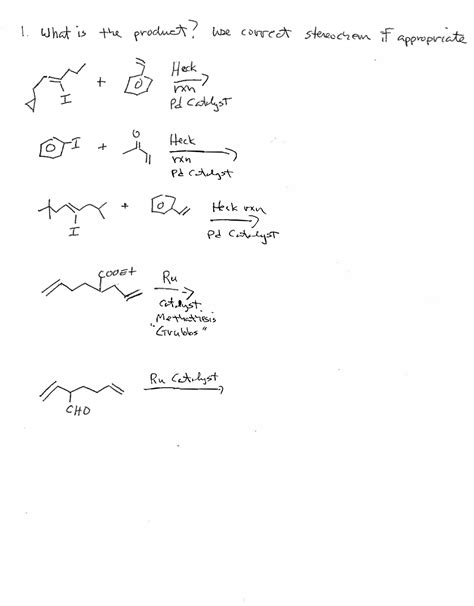 1. What is the product? Use correct stereochem if appropriate
I + Heck
rxn
Pd Catalyst
I + O Heck
rxn
Pd Catalyst
I + Heck rxn
Pd Catalyst
COOEt Ru
Catalyst
Methathesis
"Grubbs"
CHO Ru Catalyst